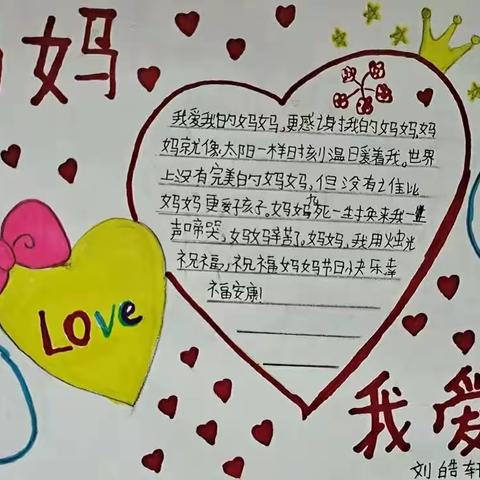 妈
我爱我的妈妈,更感谢我的妈妈,妈
妈就像太阳一样时刻温暖着我。世界
上没有完美的妈妈,但没有谁比
妈妈更爱孩子。妈妈九死一生换来我一
声啼哭。妈妈辛苦了,妈妈,我用烛光
祝福,祝福妈妈节日快乐幸
福安康!
LOve
我爱
刘皓轩